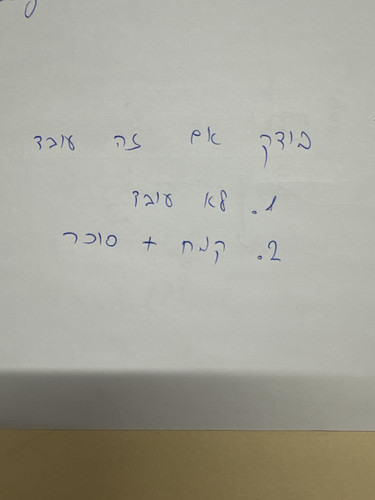 בודק אם זה עובד
1. לא עובד
2. קמח + סוכר